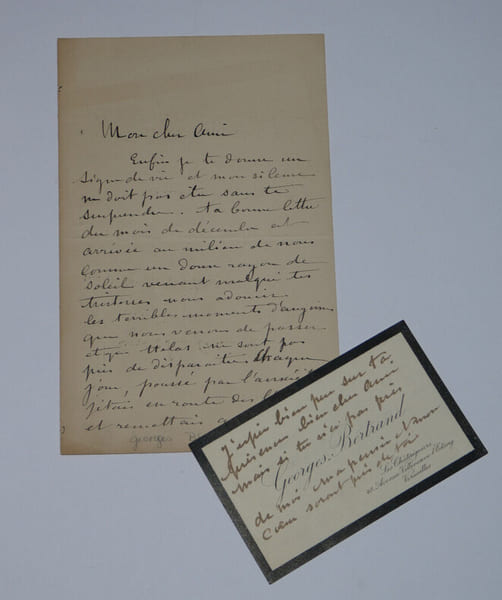 Mon cher Ami
Enfin je te donne un
signe de vie et mon silence
ne doit pas être sans te
surprendre. ta bonne lettre
du mois de décembre est
arrivée au milieu de nous
comme un doux rayon de
soleil venant malgré tes
tristesses nous adoucir
les terribles moments d'angoisse
que nous venons de passer
et qui hélas ne sont pas
près de disparaître. Chaque
jour, poussé par l'anxiété
j'étais en route des
et remettais
georges
J'espère bien peu sur ta
présence bien cher Ami
Mais si tu n'es pas près
Georges Bertrand
de moi ma pensée et mon
Cœur seront près de toi
Les Châtaigniers
Avenue Villeneuve l'Etang
Versailles